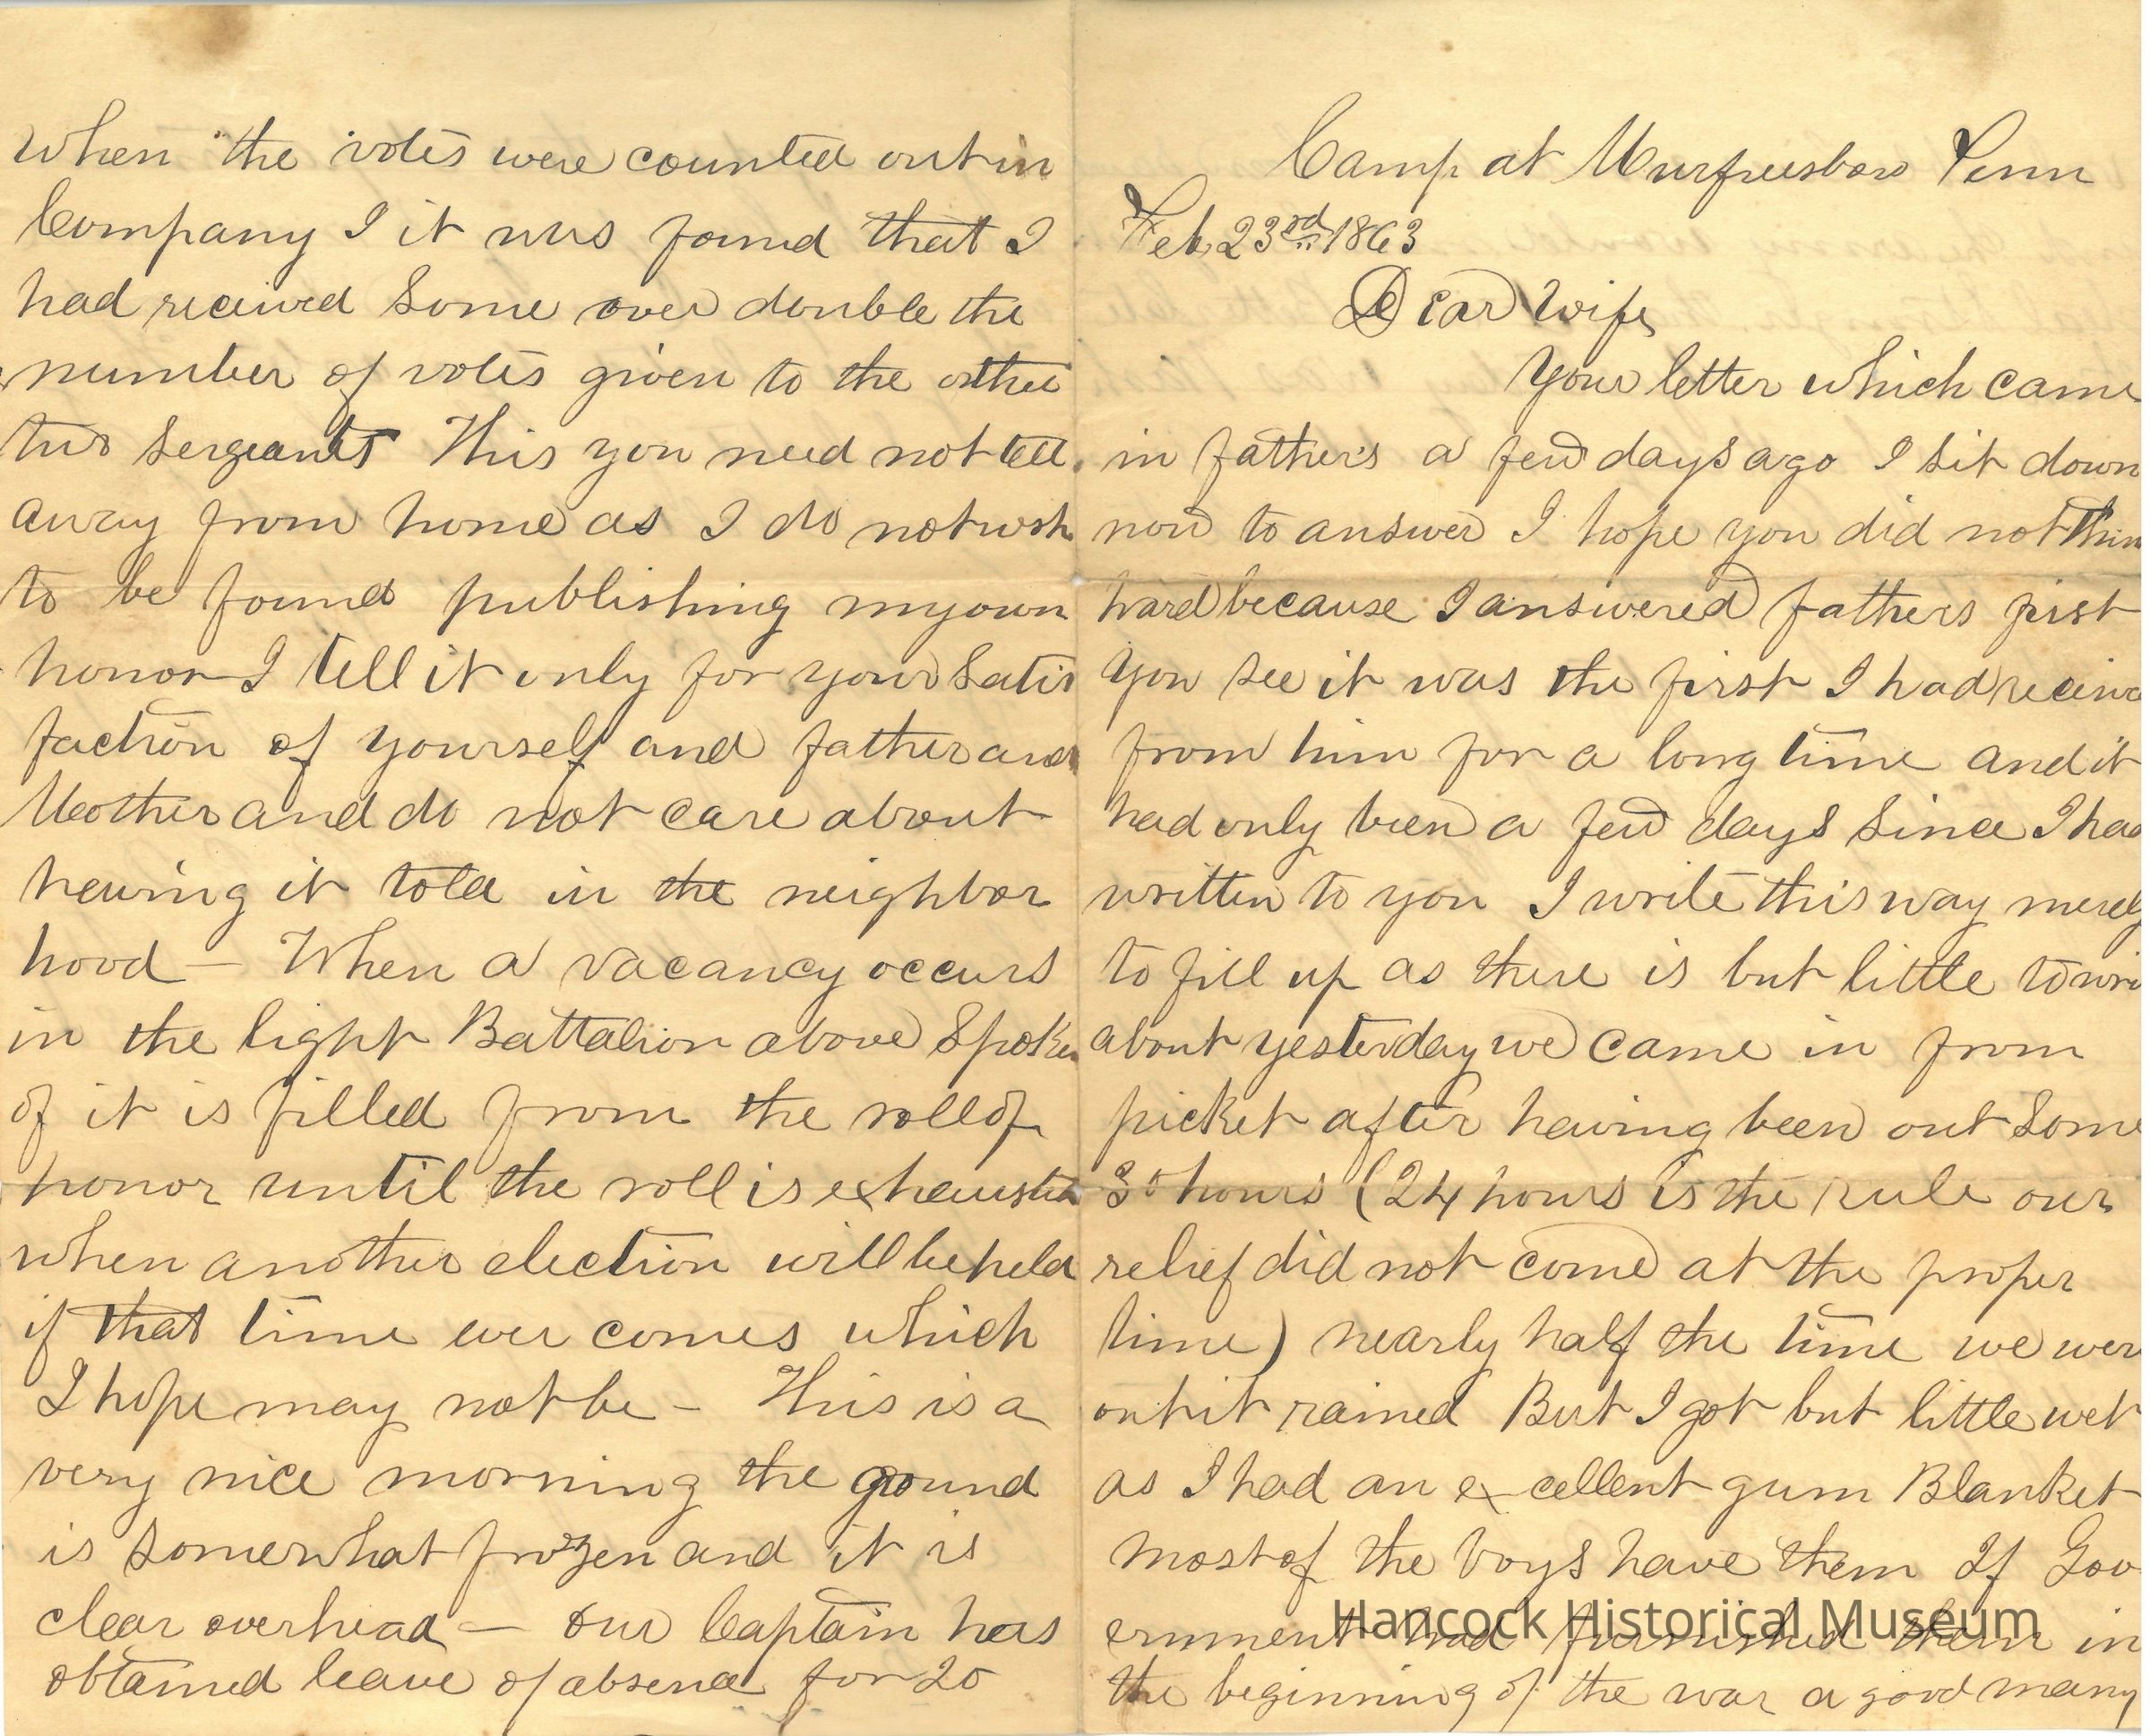 Camp at Murfreesboro Tenn
Feb 23rd 1863
Dear Wife
Your letter which came
in father's a few days ago I sit down
now to answer I hope you did not thin
hard because I answered fathers first
You see it was the first I had receive
from him for a long time and it
had only been a few days since I had
written to you I write this way merely
to fill up as there is but little to wri
about yesterday we came in from
picket after having been out some
30 hours (24 hours is the rule our
relief did not come at the proper
time) nearly half the time we were
out it rained But I got but little wet
as I had an excellent gum Blanket
most of the boys have them If Gov
ernment had furnished them in
the beginning of the war a good many
When the votes were counted out in
Company I it was found that I
had received some over double the
number of votes given to the other
two Sergeants This you need not tell
away from home as I do not wish
to be found publishing my own
honor I tell it only for your Satis
faction of yourself and father and
Mother and do not care about
having it told in the neighbor
hood — When a vacancy occurs
in the light Battalion above Spoken
of it is filled from the roll of
honor until the roll is exhausted
when another election will be held
if that time ever comes which
I hope may not be – This is a
very nice morning the ground
is somewhat frozen and it is
clear overhead — our Captain has
obtained leave of absence for 20
Hancock Historical Museum